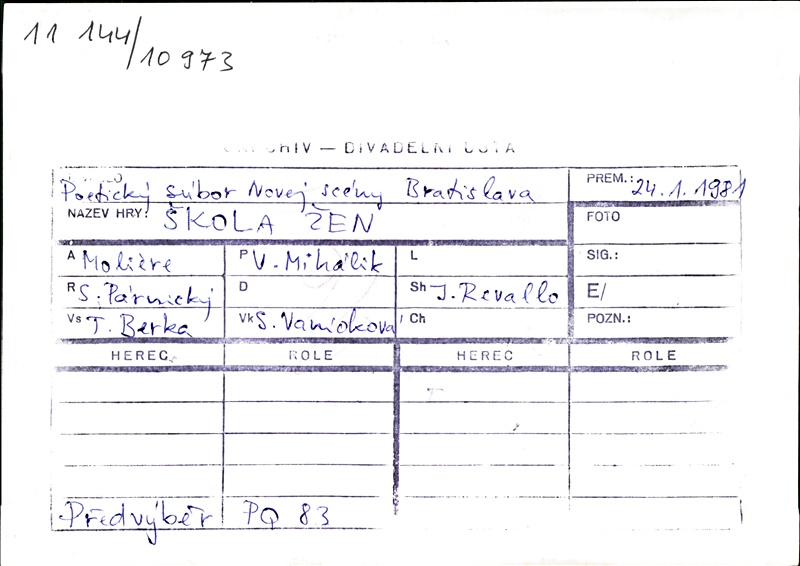 11 144/10973
ARCHIV — DIVADELNÍ
Poetický súbor Novej scény Bratislava
PREM.: 24.1.1981
NÁZEV HRY: ŠKOLA ŽEN
FOTO
A Molière P V. Mihálik L SIG.:
R S. Párnický D Sh J. Revallo E/
Vs T. Berka Vk S. Vanioková Ch POZN.:
HEREC ROLE HEREC ROLE
Předvýběr PQ 83